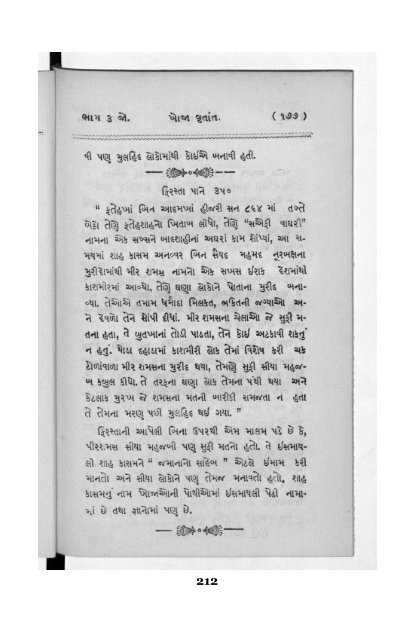 ભાગ ૩ જો. ખોજા વૃતાંત. (૧૭૭)
વી પણ મુલહિદ લોકોમાંથી કોઈએ બનાવી હતી.
ફિરસ્તા પાને ૩૫૦
“ ફતેહખાં બિન આદમખાં હીજરી સન ૮૯૪ માં તખ્તે
બેઠો તેણે ફતેહશાહનો ખિતાબ લીધો, તેણે “સએફી વાઘરી”
નામના એક સખ્સને બાદશાહીનાં અઘરાં કામ સોંપ્યાં, આ સ-
મયમાં શાહ કાસમ અનવ્વર બિન સૈયદ મહમદ નૂરબક્ષના
મુરીદોમાંથી મીર શમસ નામનો એક સખસ ઈરાક દેશમાંથી
કાશમીરમાં આવ્યો, તેણે ઘણા લોકોને પોતાના મુરીદ બના-
વ્યા. તેઓએ તમામ ધર્માદા મિલકત, ભક્તિની જગ્યાઓ અ-
ને દેવળો તેને સોંપી દીધાં. મીર શમસના ચેલાઓ જે સુફી મ-
તના હતા, તે બુતખાનાં તોડી પાડતા, તેને કોઈ અટકાવી શકતું
ન હતું. થોડા દહાડામાં કાશમીરી લોક તેમાં વિશેષ કરી ચક
ટોળાંવાળા મીર શમસના મુરીદ થયા, તેમણે સુફી સીયા મહજ-
બ કબુલ કીધો. તે તરફના ઘણા લોક તેમના પંથી થયા અને
કેટલાક મુરખ જે શમસના મતની બારીકી સમજતા ન હતા
તે તેમના મરણ પછી મુલહિદ થઈ ગયા. ”
ફિરસ્તાની આપેલી બિના ઉપરથી એમ માલમ પડે છે કે,
પીરશમસ સીયા મહજબી પણ સુફી મતનો હતો. તે ઇસમાય-
લી શાહ કાસમને “ જમાનાનો સાહેબ ” એટલે ઈમામ કરી
માનતો અને સીયા લોકોને પણ તેમજ મનાવતો હતો, શાહ
કાસમનું નામ ખોજાઓની પોથીઓમાં ઇસમાયલી પેઢી નામા-
માં છે તથા જ્ઞાનોમાં પણ છે.
212